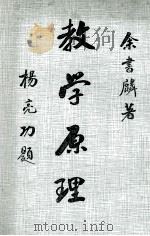 余書麟著
教学原理
楊亮功題
mtoou.info